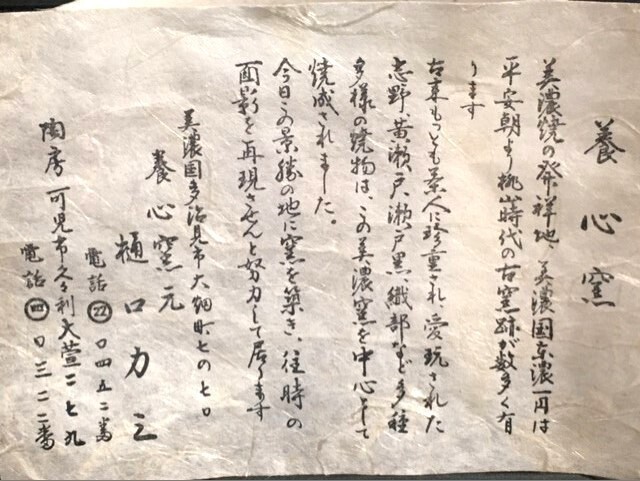 養心窯
美濃焼の発祥地、美濃国東濃一円は
平安朝より桃山時代の古窯跡が数多く有
ります
古来もっとも茶人に珍重され、愛玩された
志野、黄瀬戸、瀬戸黒、織部など多種
多様の焼物は、この美濃窯を中心として
焼成されました。
今日この景勝の地に窯を築き、往時の
面影を再現させんと努力して居ります
美濃国多治見市大畑町七の七〇
養心窯元
樋口力三
電話㉒〇四五二番
陶房 可児市久々利大萱一七九
電話㊃〇三二二番